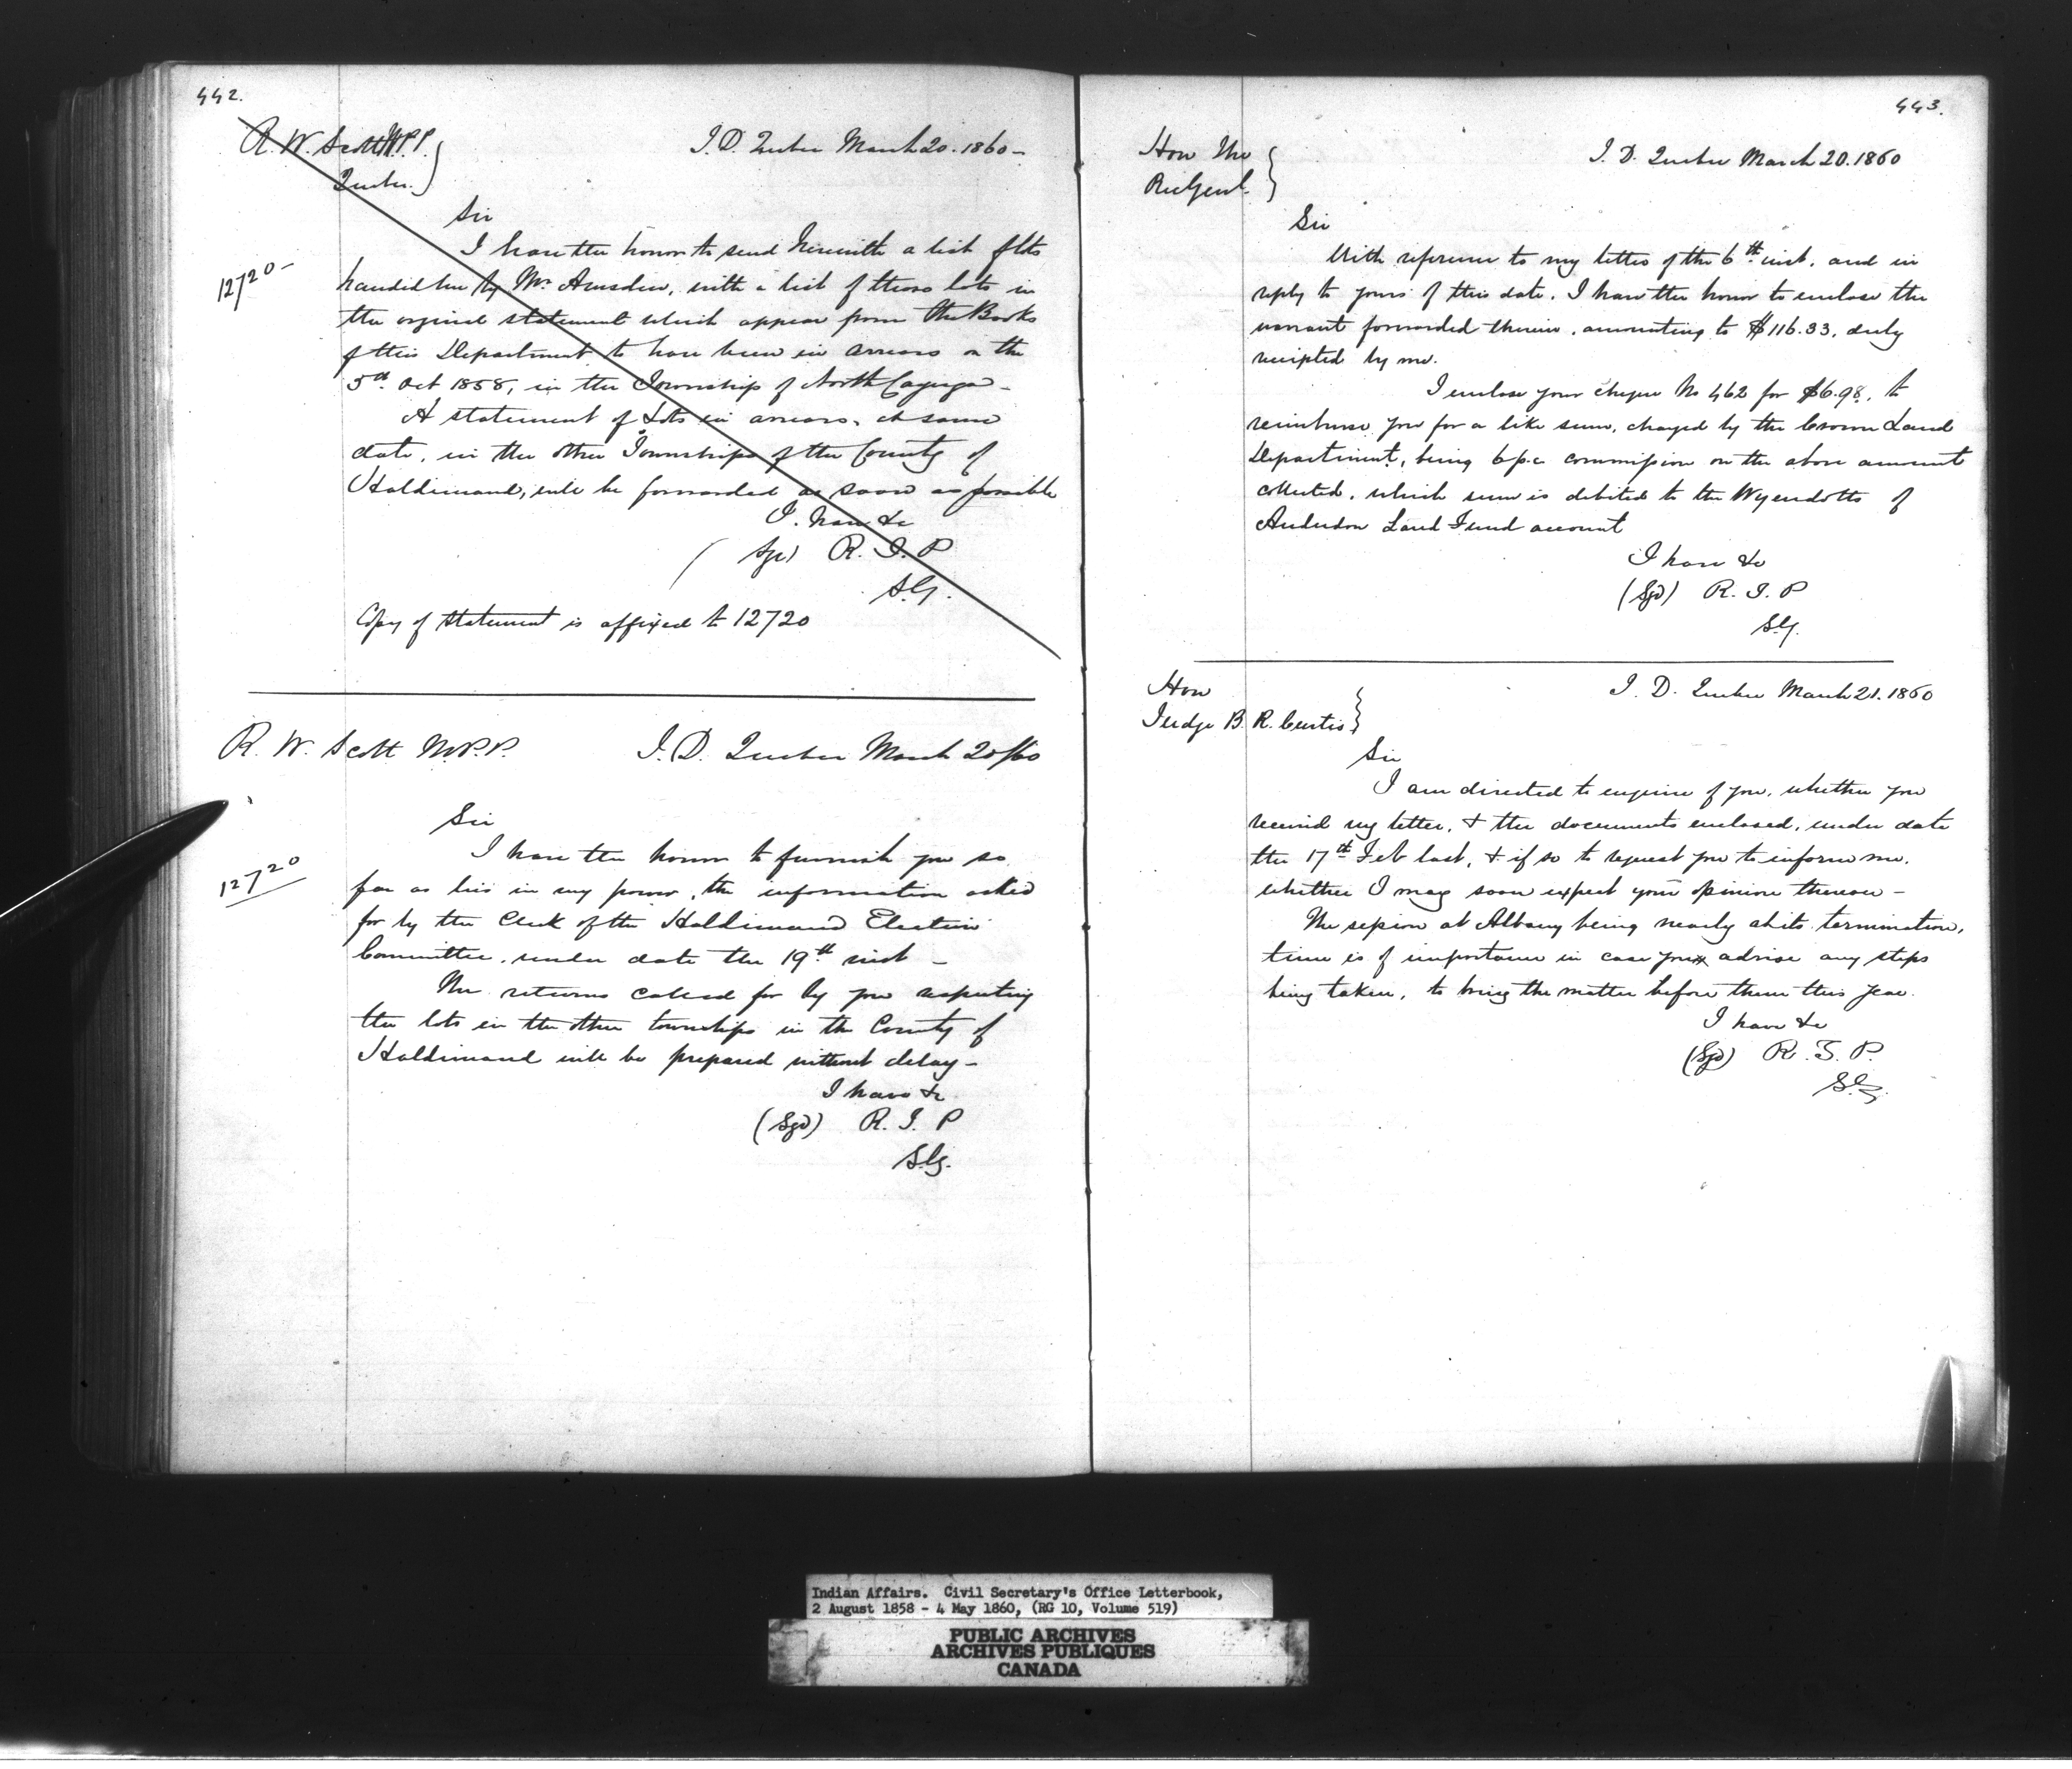 442.
R. W. Scott M.P.P.
Quebec.
I.D. Quebec March 20. 1860 -
Sir
12720 -
I have the honor to send herewith a list of lots
handed me by Mr Amsden, with a list of those lots in
the orginal statement which appear from the Books
of this Department to have been in arrears on the
5th Oct 1858, in the Township of North Cayuga -
A statement of Lots in arrears, at same
date, in the other Townships of the County of
Haldimand, will be forwarded as soon as possible
I. have &c
(Sgd) R. T. P
S.G.
Copy of statement is affixed to 12720
R. W. Scott M.P.P.
I. D. Quebec March 20/60
Sir
12720
I have the honor to furnish you so
far as lies in my power, the information asked
for by the Clerk of the Haldimand Election
Committee, under date the 19th inst -
The returns called for by you respecting
the lots in the other townships in the County of
Haldimand will be prepared without delay -
I have &c
(Sgd) R. T. P
S.G.
443.
Hon The
Rec Genl.
I. D. Quebec March 20. 1860
Sir
With reference to my letter of the 6th inst. and in
reply to yours of this date. I have the honor to enclose the
warrant forwarded therein, amounting to $116.33, duly
receipted by me.
I enclose your cheque No 462 for $6.98, to
reimburse you for a like sum, charged by the Crown Land
Department, being 6 p.c commission on the above amount
collected, which sum is debited to the Wyendotts of
Anderdon Land Fund account
I have &c
(Sgd) R. T. P
S.G.
Hon
Judge B. R. Curtis
I. D. Quebec March 21. 1860
Sir
I am directed to enquire of you, whether you
received my letter, & the documents enclosed, under date
the 17th Feb last, & if so to request you to inform me,
whether I may soon expect your opinion thereon -
The session at Albany being nearly at its termination,
time is of importance in case you advise any steps
being taken, to bring the matter before them this year.
I have &c
(Sgd) R. T. P.
S.G.
Indian Affairs. Civil Secretary's Office Letterbook,
2 August 1858 - 4 May 1860, (RG 10, Volume 519)
PUBLIC ARCHIVES
ARCHIVES PUBLIQUES
CANADA